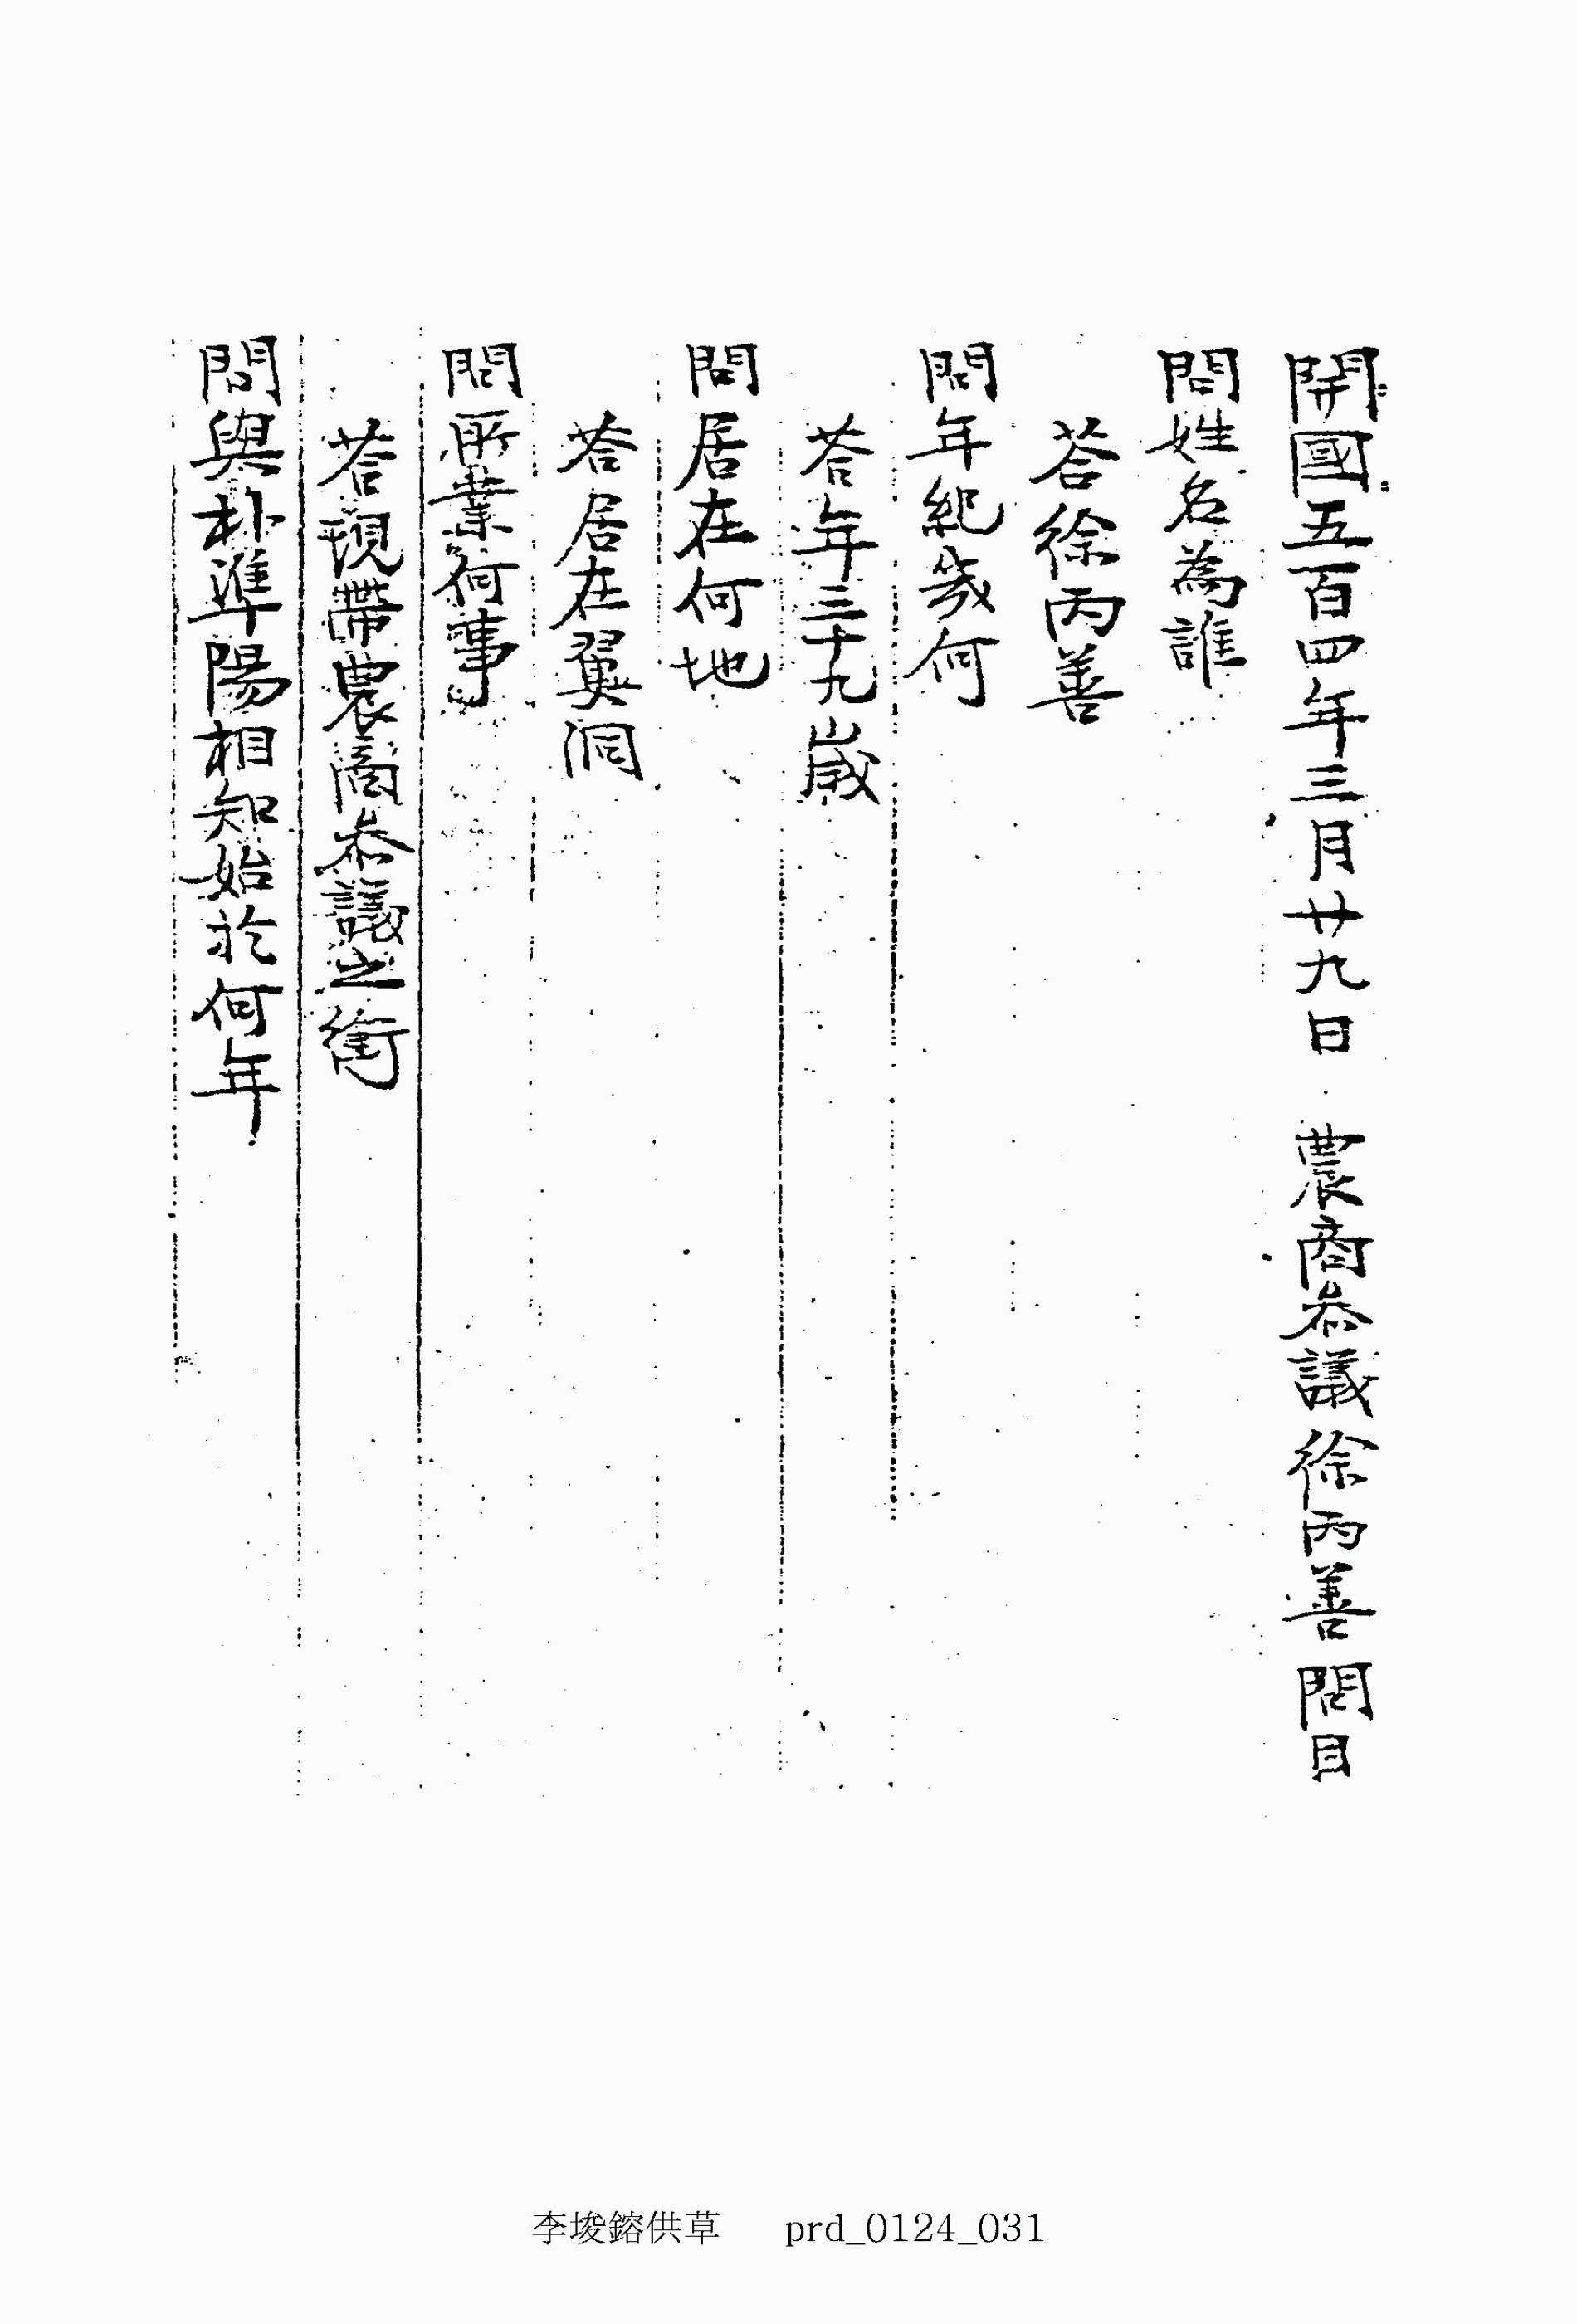 開國五百四年三月廿九日 農商叅議徐丙善 問目
問姓名為誰
答徐丙善
問年紀幾何
答年三十九歲
問居在何地
答居在翼洞
問所業何事
答現帶農商叅議之銜
問與朴準陽相知始於何年
李埈鎔供草 prd_0124_031